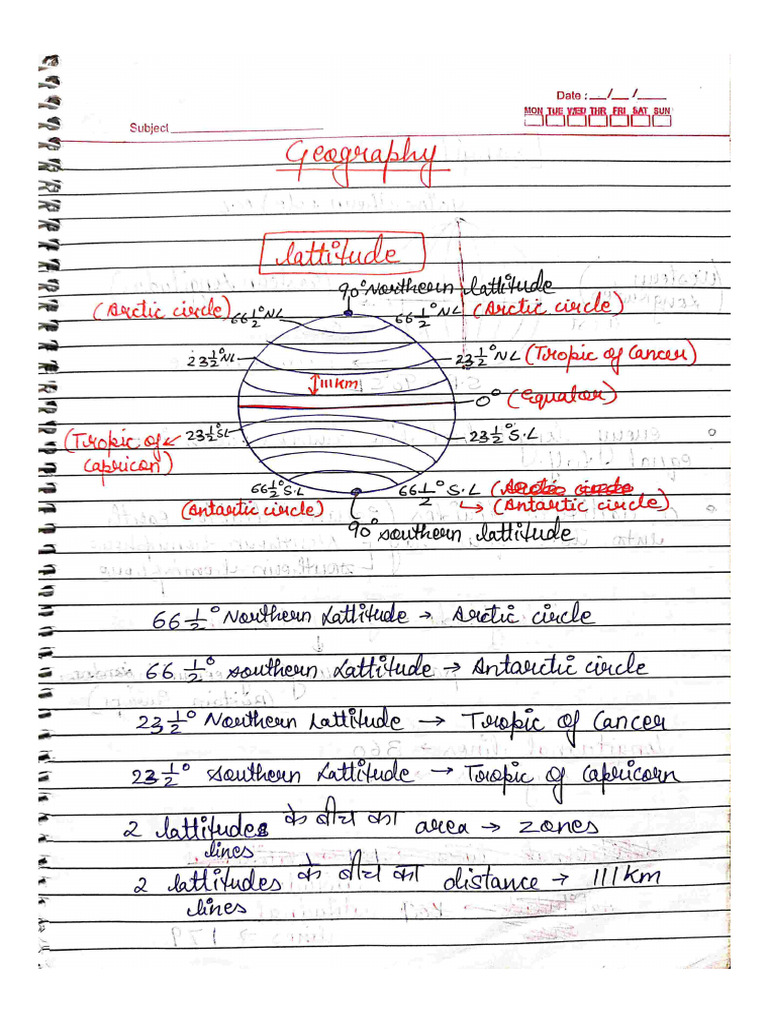 Date : __/__/____
MON TUE WED THR FRI SAT SUN
Subject
Geography
Lattitude
90° Northern Lattitude
(Arctic circle) 66 1/2° NL 66 1/2° NL (Arctic circle)
23 1/2° NL 23 1/2° NL (Tropic of Cancer)
111 KM
0° (Equator)
(Tropic of ← 23 1/2° SL 23 1/2° S.L
Capricon)
66 1/2° S.L 66 1/2° S.L (Arctic circle
(Antartic circle) → (Antartic circle)
90° southern Lattitude
66 1/2° Northern Lattitude → Arctic circle
66 1/2° southern Lattitude → Antarctic circle
23 1/2° Northern Lattitude → Tropic of Cancer
23 1/2° southern Lattitude → Tropic of Capricorn
2 lattitudes के बीच का area → zones
lines
2 lattitudes के बीच का distance → 111 km
lines